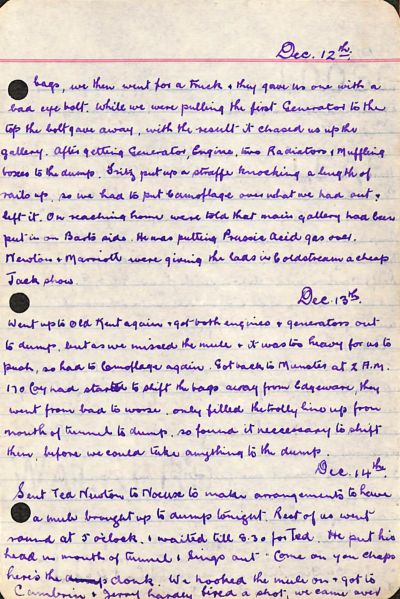 Dec. 12th.
bags, we then went for a truck & they gave us one with a
bad eye bolt. While we were pulling the first Generator to the
top the bolt gave away, with the result it chased us up the
gallery. After getting Generator, Engine, two Radiators & Muffling
boxes to the dump. Fritz put up a straffe knocking a length of
rails up, so we had to put Camoflage over what we had out &
left it. On reaching home were told that main gallery had been
put in on Barts side. He was putting Prussic Acid gas over.
Newton & Marriott were giving the lads in Coldstream a cheap
Jack show.
Dec. 13th.
Went up to Old Kent again & got both engines & generators out
to dump, but as we missed the mule & it was too heavy for us to
push, so had to Camoflage again. Got back to at 2 A.M.
170 Coy had to shift the bags away from Edgeware, they
went from bad to worse, only filled the trolly line up from
mouth of tunnel to dump, so found it neccessary to shift
them, before we could take anything to the dump.
Dec. 14th.
Sent Ted Newton to to make arrangements to have
a mule brought up to dump tonight. Rest of us went
round at 5 o'clock. I waited till 8.30 for Ted. He put his
head in mouth of tunnel & sings out Come on you chaps
here's the donk. We hooked the mule on & got to
Cambrin & Jerry hardly fired a shot, we came over